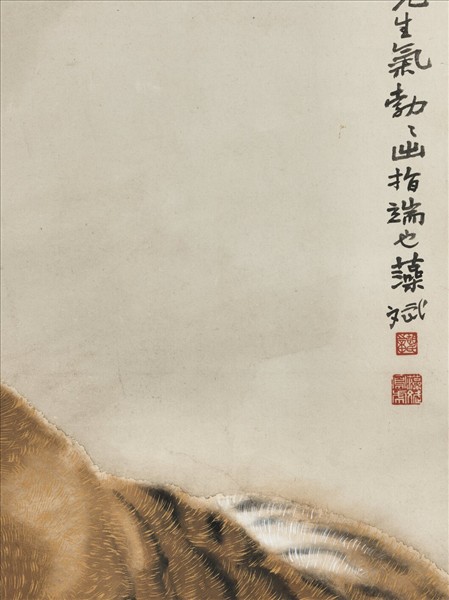 生氣勃〻出指端也藻斌